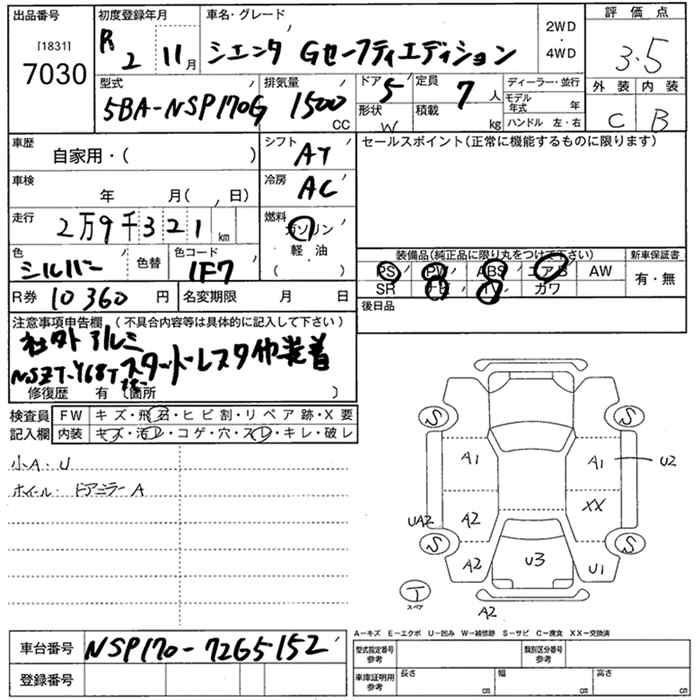 出品番号
[1831]
7030
初度登録年月
R 2 11月
車名・グレード
シエンタ Gセーフティエディション
2WD
・
4WD
評価点
3.5
外装 内装
C B
型式
5BA-NSP170G
排気量
1500 CC
ドア 5
形状 W
定員 7人
積載 kg
ディーラー・並行
モデル年式 年
ハンドル 左・右
車歴
自家用・( )
シフト AT
セールスポイント(正常に機能するものに限ります)
車検
年 月( , 日)
冷房 AC
走行
2万9千321km
燃料
ガソリン
・
軽油
( )
色
シルバー
色替
色コード
1F7
装備品(純正品に限り丸をつけて下さい)
PS PW ABS エアB AW
SR ナビ TV カワ
新車保証書
有・無
R券 10360円
名変期限 月 日
後日品
注意事項申告欄(不具合内容等は具体的に記入して下さい)
社外アルミ
NSZT-Y68T スタッドレスタイヤ装着
修復歴 有〔箇所 〕
検査員
記入欄
FW キズ・飛石・ヒビ割・リペア跡・X要
内装 キズ・汚レ・コゲ・穴・スレ・キレ・破レ
小A・U
ホイール・ドアミラーA
S S
A1 A1 U2
XX
UA2 A2
S S
A2 U3 U1
T
スペア
A2
A−キズ E−エクボ U−凹み W−補修跡 S−サビ C−腐食 XX−交換済
車台番号 NSP170-7265152
登録番号
型式指定番号
参考
類別区分番号
参考
車庫証明用
参考
長さ cm 幅 cm 高さ cm